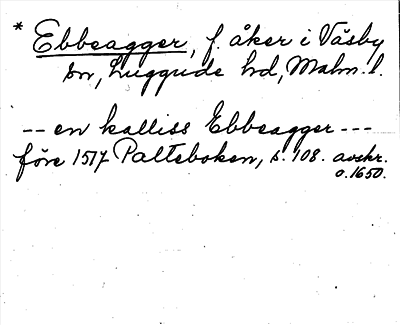 * Ebbeagger, f. åker i Väsby
sn, Luggude hd, Malm. l.
-- en kalliss Ebbeagger ---
före 1517 Palteboken, s. 108. avskr.
o. 1650.